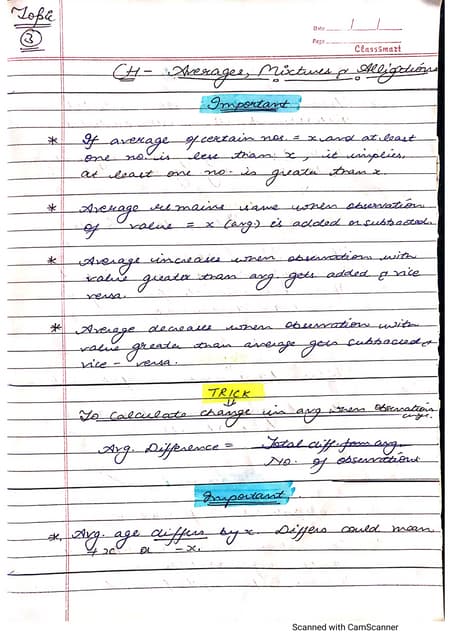 Topic
3
Date / /
Page
Classmart
CH - Averages, Mixtures & Alligations
Important
* If average of certain nos. = x and at least
one no. is less than x, it implies,
at least one no. is greater than x.
* Average remains same when observation
of value = x (avg) is added or subtracted.
* Average increases when observation with
value greater than avg gets added & vice
versa.
* Average decreases when observation with
value greater than average gets subtracted &
vice - versa.
TRICK
To calculate change in avg when observation
Avg. Difference = Total diff. from avg.
No. of observations
Important
* Avg. age differs by x. Differs could mean
+x or -x.
Scanned with CamScanner